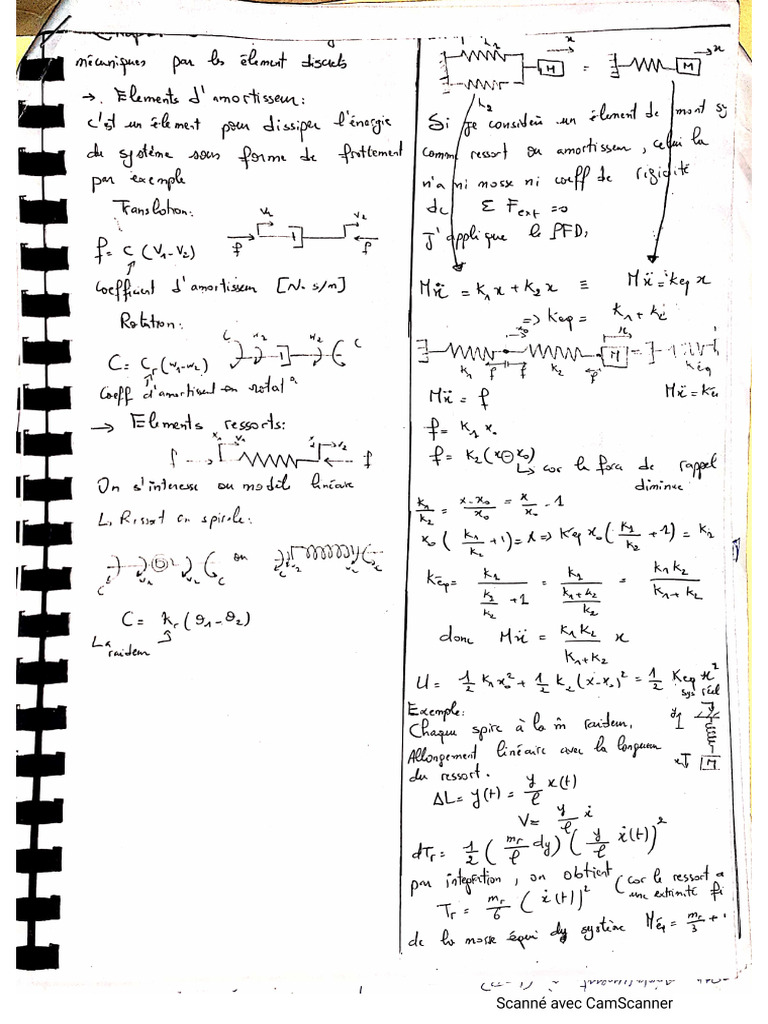 mécaniques par les élement discrets
→. Elements d'amortisseur:
c'est un élement pour dissiper l'énergie
du système sous forme de frottement
par exemple
Translation:
f = C (V1 - V2)
V1
V2
f
f
Coefficient d'amortisseur [N.s/m]
Rotation:
C = Cr (w1-w2)
C
w2
C
Coeff d'amortissent en rotat°
→ Elements ressorts:
f
f
On s'interesse au modèl linéaire
L, Ressort en spirale:
ou
C = kr (θ1 - θ2)
L raideur
k2
M
x
=
M
x
Si je considère un élement de mont sy
comme ressort ou amortisseur, celui la
n'a ni masse ni coeff de rigidité
dc Σ Fext = 0
J'applique le PFD,
Mẍ = K1 x + K2 x ≡ Mẍ = keq x
=> Keq = K1 + K2
k1 f f k2 M
Mẍ = f
f = K1 x0
f = K2 (x - x0)
↳ car la force de rappel
diminue
K1/K2 = x-x0/x0 = x/x0 - 1
x0 ( K1/K2 + 1) = x => Keq x0 ( K1/K2 + 1) = K1
Keq = K1/(K1/K2 + 1) = K1/((K1+K2)/K2) = K1K2/(K1+K2)
donc Mẍ = K1K2/(K1+K2) x
U = 1/2 K1 x0² + 1/2 k2 (x-x0)² = 1/2 Keq x²
sys réel
Exemple:
Chaque spire à la m̂ raideur.
Allongement linéaire avec la longueur
du ressort.
ΔL = y(t) = y/l x(t)
V = y/l ẋ
dTr = 1/2 ( mr/l dy) ( y/l ẋ(t) )²
par integration, on obtient
Tr = mr/6 ( ẋ(t) )² (car le ressort a
une extrimité fi
de la masse équi dy système Méq = mr/3 +
Scanné avec CamScanner